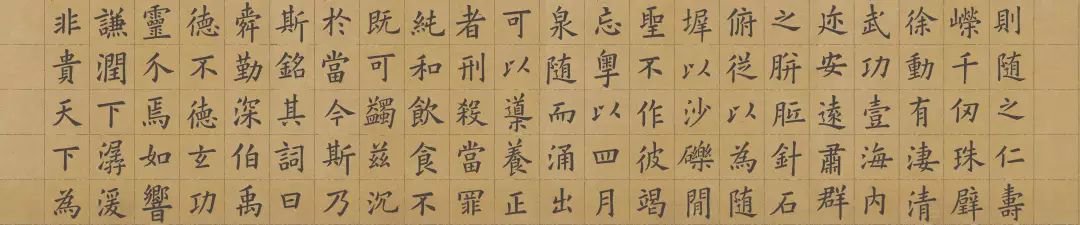 則随之仁壽
嶸千仞珠璧
徐動有淒清
武功壹海内
迩安遠肅群
之胼胝針石
俯從以為随
墀以沙礫閒
聖不作彼竭
忘粵以四月
泉随而涌出
可以導養正
者刑殺當罪
純和飲食不
既可蠲茲沉
於當今斯乃
斯銘其詞曰
舜勤深伯禹
德不德玄功
靈介焉如響
謙潤下潺湲
非貴天下為